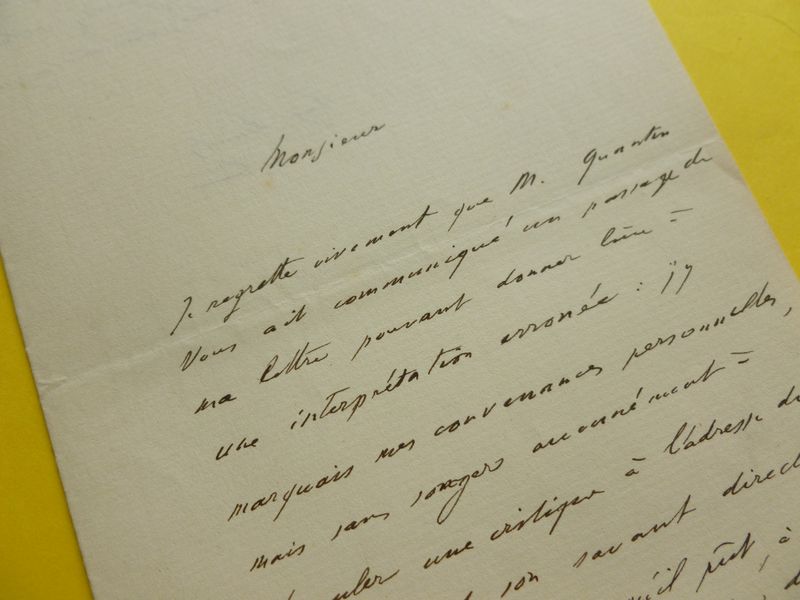 Monsieur
Je regrette vivement que M. Quantin
vous ait communiqué un passage de
ma lettre pouvant donner lieu =
une interprétation erronée : j'y
marquais mes convenances personnelles,
mais sans songer aucunément =
une critique à l'adresse du
son savant direct
qu'il pût, à